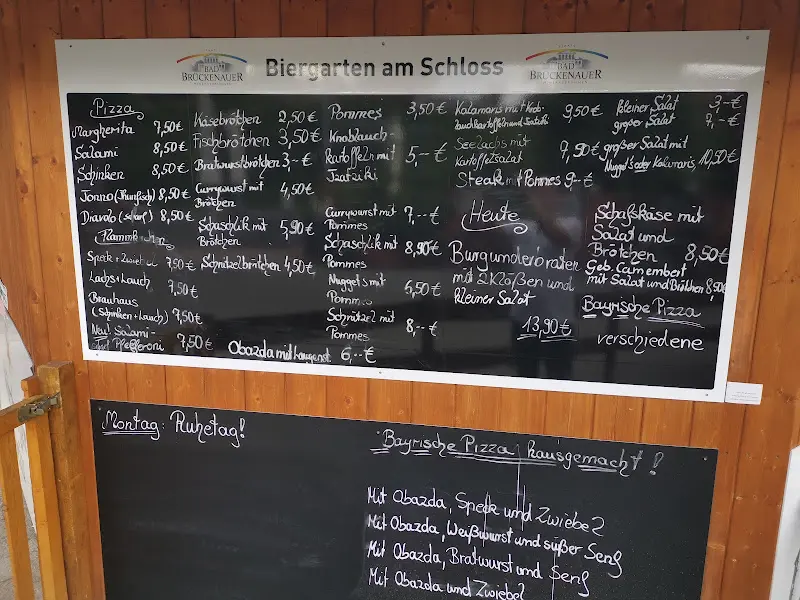 BAD
BRÜCKENAUER
Biergarten am Schloss
BAD
BRÜCKENAUER
Pizza
Margherita 7,50€
Salami 8,50€
Schinken 8,50€
Tonno (Thunfisch) 8,50€
Diavolo (scharf) 8,50€
Speck + Zwiebel 7,50€
Lachs + Lauch 7,50€
Brauhaus
(Schinken + Lauch) 7,50€
Neu! Salami-
Pfefferoni 7,50€
Käsebrötchen 2,50€
Fischbrötchen 3,50€
Bratwurstbrötchen 3,-- €
Currywurst mit 4,50€
Brötchen
Schaschlik mit 5,90€
Brötchen
Schnitzelbrötchen 4,50€
Obazda mit Laugenst. 6,--€
Pommes 3,50€
Knoblauch-
kartoffeln mit 5,--€
Tzatziki
Currywurst mit 7,--€
Pommes
Schaschlik mit 8,90€
Pommes
Nuggets mit 6,50€
Pommes
Schnitzel mit 8,--€
Pommes
Kalamaris mit Knob- 9,50€
lauchkartoffeln und
Seelachs mit 7,90€
Kartoffelsalat
Steak mit Pommes 9,--€
Heute
Burgunderbraten
mit 2 Klößen und
kleiner Salat
13,90€
kleiner Salat 3,--€
großer Salat 7,--€
großer Salat mit
Nuggets oder Kalamaris 10,50€
Schafskäse mit
Salat und
Brötchen 8,50€
Geb. Camembert
mit Salat und Brötchen 8,50€
Bayrische Pizza
verschiedene
Montag: Ruhetag!
Bayrische Pizza hausgemacht!
Mit Obazda, Speck und Zwiebel
Mit Obazda, Weißwurst und süßer Senf
Mit Obazda, Bratwurst und Senf
Mit Obazda und Zwiebel